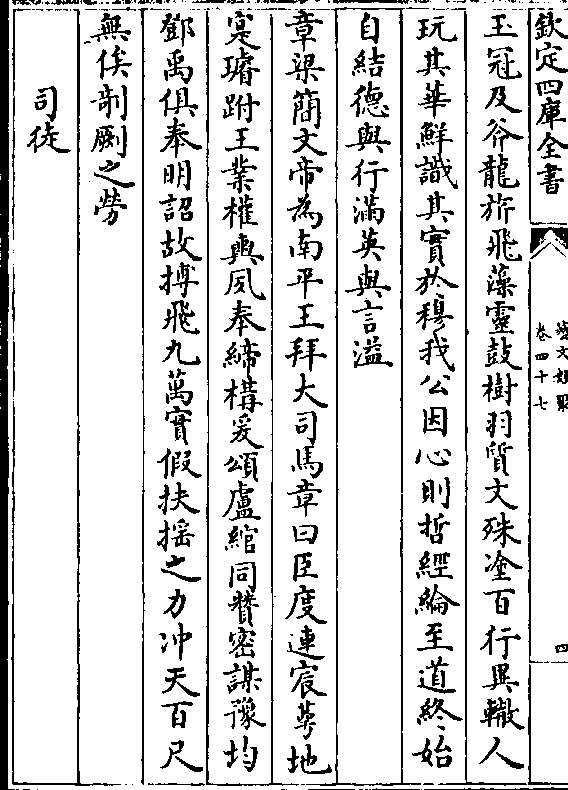 欽定四庫全書
藝文類聚
卷四十七
四
玉冠及斧龍旂飛藻靈鼓樹羽質文殊塗百行異轍人
玩其華鮮識其實於穆我公因心則哲經綸至道終始
自結德與行滿英與言溢
章梁簡文帝為南平王拜大司馬章曰臣度連宸萼地
寔璿跗王業權輿夙奉締構爰頌盧綰同賛密謀豫均
鄧禹俱奉明詔故搏飛九萬實假扶揺之力冲天百尺
無俟剞劂之勞
司徒